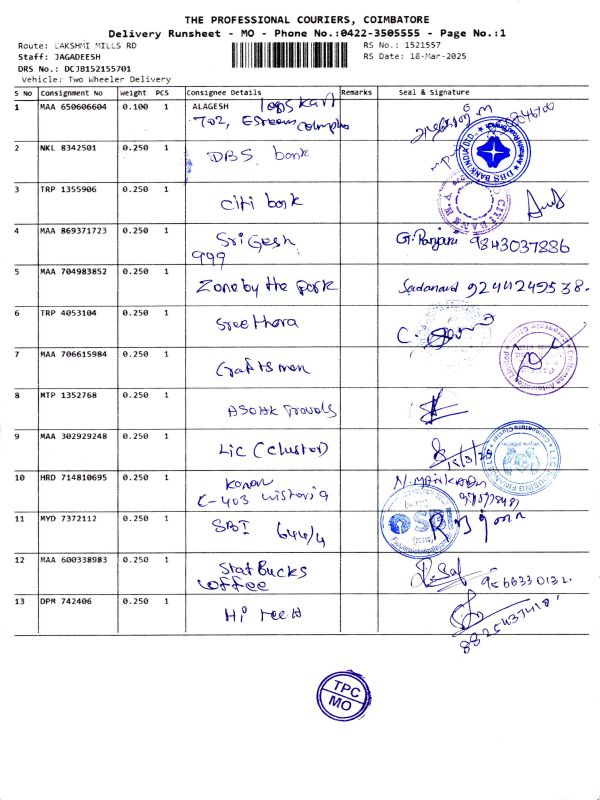 THE PROFESSIONAL COURIERS, COIMBATORE
Delivery Runsheet - MO - Phone No.:0422-3505555 - Page No.:1
Route: LAKSHMI MILLS RD RS No.: 1521557
Staff: JAGADEESH RS Date: 18-Mar-2025
DRS No.: DCJB152155701
Vehicle: Two Wheeler Delivery
S No Consignment No Weight PCS Consignee Details Remarks Seal & Signature
1 MAA 650606604 0.100 1 ALAGESH
702,
2 NKL 8342501 0.250 1 DBS bank
DBS BANK INDIA LTD
3 TRP 1355906 0.250 1 Citi bank
CITI BANK N.A.
4 MAA 869371723 0.250 1 Sri Gesh G. Ranjani 9843037886
999
5 MAA 704983852 0.250 1 Zone by the park Sadanand 9244249538.
6 TRP 4053104 0.250 1 Sreethora
7 MAA 706615984 0.250 1 Craftsman
8 MTP 1352768 0.250 1 ASOHK Travels
9 MAA 302929248 0.250 1 Lic (Cluster) 18/3/25
10 HRD 714810695 0.250 1
C-403
11 MYD 7372112 0.250 1 SBI 644/4
SBI
12 MAA 600338983 0.250 1 StatBucks
coffee 9566330132.
13 DPM 742406 0.250 1 Hi reed
8825437418.
TPC
MO